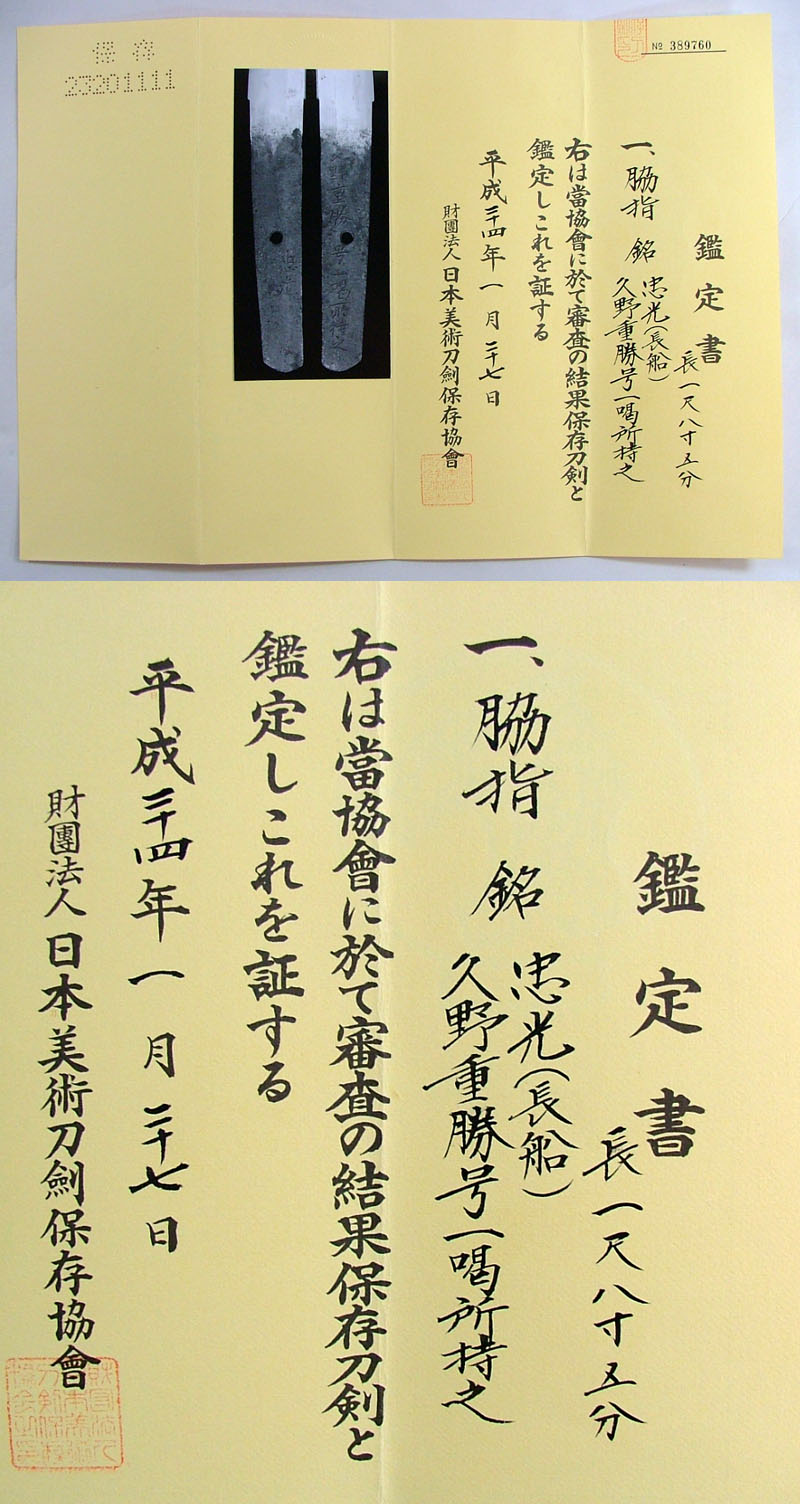 保存
23201111
№ 389760
鑑定書
長一尺八寸五分
一、脇指 銘 忠光(長船)
久野重勝号一喝所持之
右は當協會に於て審査の結果保存刀剣と
鑑定しこれを証する
平成二十四年一月二十七日
財團法人日本美術刀劍保存協會
鑑定書
長一尺八寸五分
一、脇指 銘 忠光(長船)
久野重勝号一喝所持之
右は當協會に於て審査の結果保存刀剣と
鑑定しこれを証する
平成二十四年一月二十七日
財團法人日本美術刀劍保存協會